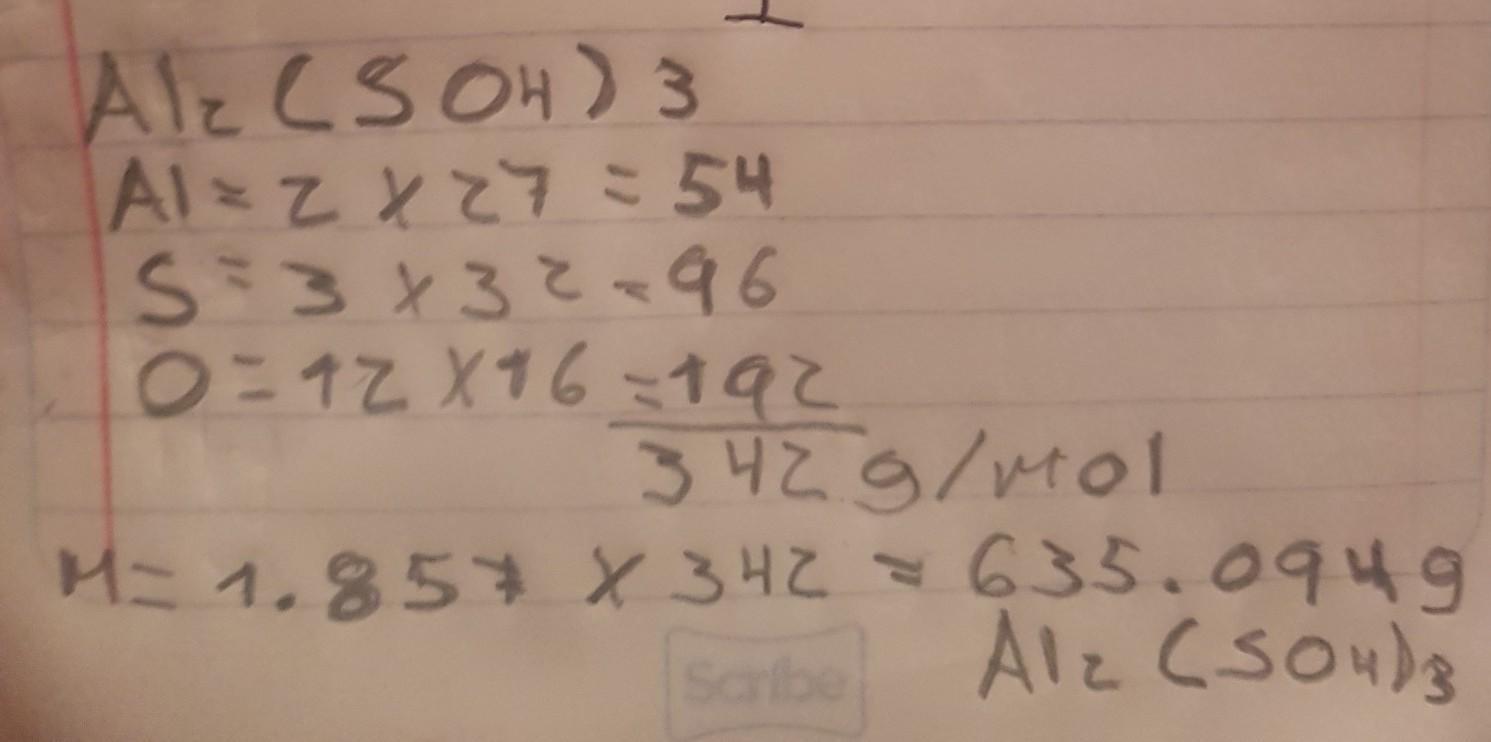 Al2(SO4)3
Al=2 x 27 = 54
S=3 x 32=96
O=12 x 16=192
342 g/mol
M=1.857 x 342 = 635.094g
Al2(SO4)3
Scribe